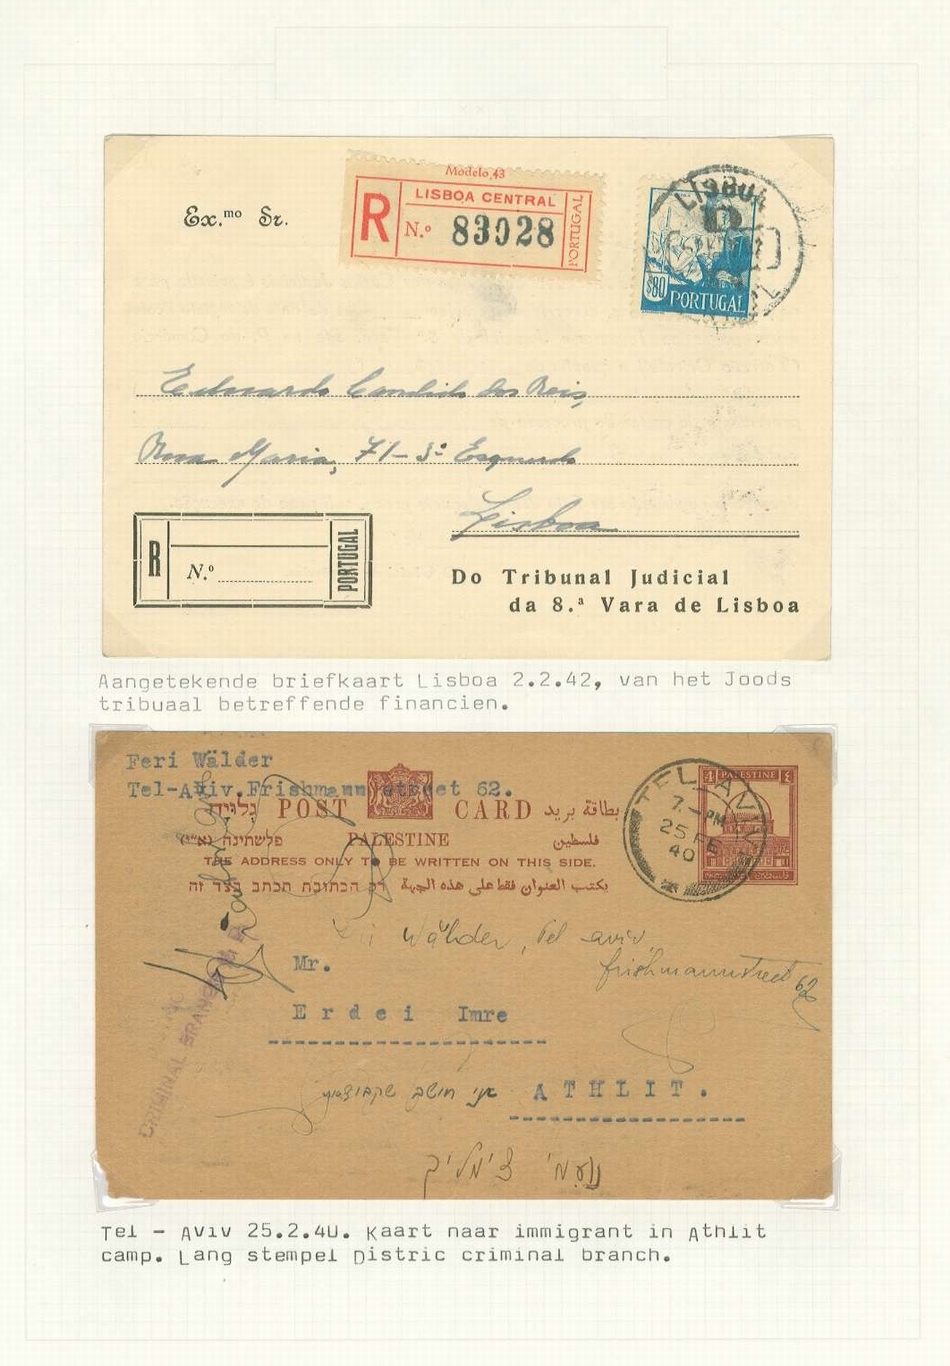 Modelo 43
LISBOA CENTRAL
R N.º 83028
PORTUGAL
LISBOA
$80
PORTUGAL
Ex.mo Sr.
Eduardo Candido dos Reis,
Rosa Maria, 71-3º Esquerdo
Lisboa
R
N.º
PORTUGAL
Do Tribunal Judicial
da 8.ª Vara de Lisboa
Aangetekende briefkaart Lisboa 2.2.42, van het Joods
tribuaal betreffende financien.
Feri Wälder
Tel-Aviv.Frishmann street 62.
גלויה POST CARD بطاقة بريد
פלשתינה (א״י) PALESTINE فلسطين
THE ADDRESS ONLY TO BE WRITTEN ON THIS SIDE.
רק הכתובת תכתב בצד זה يكتب العنوان فقط على هذه الجهة
4 PALESTINE ٤
TEL AVIV
7.-PM
25 FE
40
Wälder, Tel aviv,
frishmannstreet 62
Mr.
Erdei Imre
אני חושב
ATHLIT.
CRIMINAL BRANCH
Tel - Aviv 25.2.40. Kaart naar immigrant in Athlit
camp. Lang stempel Distric criminal branch.